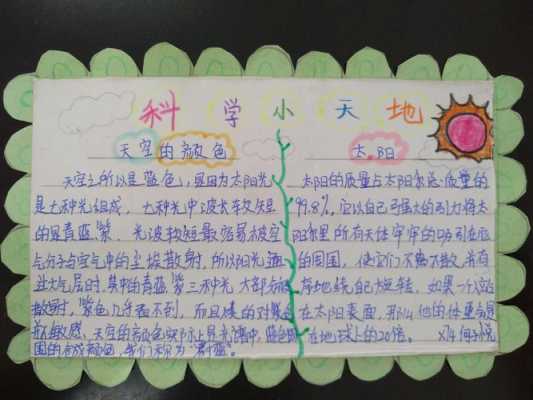 科学小天地
天空的颜色
天空之所以是蓝色,是因为太阳光
是七种光组成,七种光中波长较短
的是青蓝紫,光波较短最容易被空
气分子与空气中的尘埃散射,所以阳光通
过大气层时,其中的青蓝紫三种光大部分被
散射,紫色几乎看不到,而且
敏感。天空的颜色实际上是光谱中,蓝色
围的合成颜色,我们称为"蔚蓝"。
太阳
太阳的质量占太阳系总质量的
99.8%,它以自己强大的引力将太
阳系里所有天体牢牢的吸引在
的周围,使它们不离不散,井
有序地绕自己旋转。如果一个
在太阳表面,那么他的体重
在地球上的20倍。